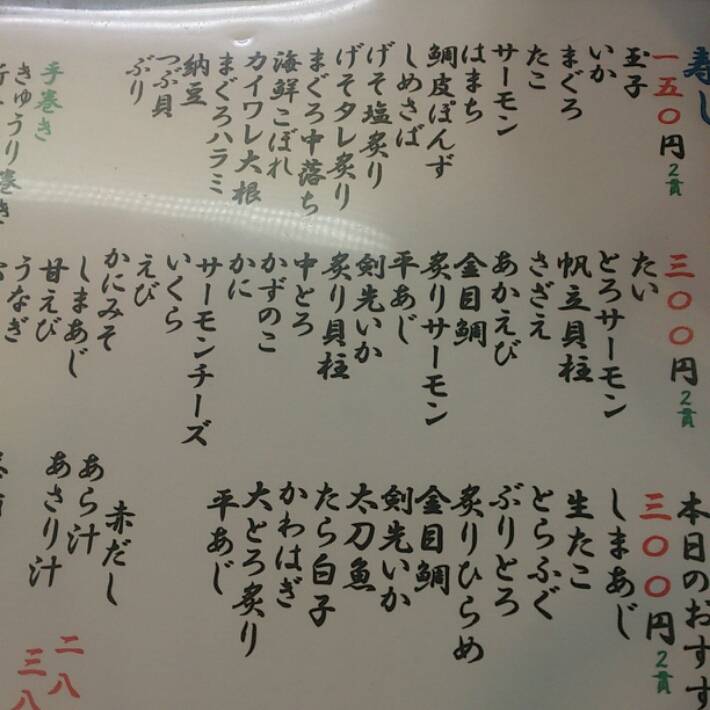 寿し
一五〇円2貫
玉子
いか
まぐろ
たこ
サーモン
はまち
鯛皮ぽんず
しめさば
げそ塩炙り
げそタレ炙り
まぐろ中落ち
海鮮こぼれ
カイワレ大根
まぐろハラミ
納豆
つぶ貝
ぶり
手巻き
きゅうり巻き
三〇〇円2貫
たい
とろサーモン
帆立貝柱
さざえ
あかえび
金目鯛
炙りサーモン
平あじ
剣先いか
炙り貝柱
中とろ
かずのこ
かに
サーモンチーズ
いくら
えび
かにみそ
しまあじ
甘えび
うなぎ
本日のおすす
三〇〇円2貫
しまあじ
生たこ
とらふぐ
ぶりとろ
炙りひらめ
金目鯛
剣先いか
太刀魚
たら白子
かわはぎ
大とろ炙り
平あじ
赤だし
あら汁
あさり汁
二八
三八